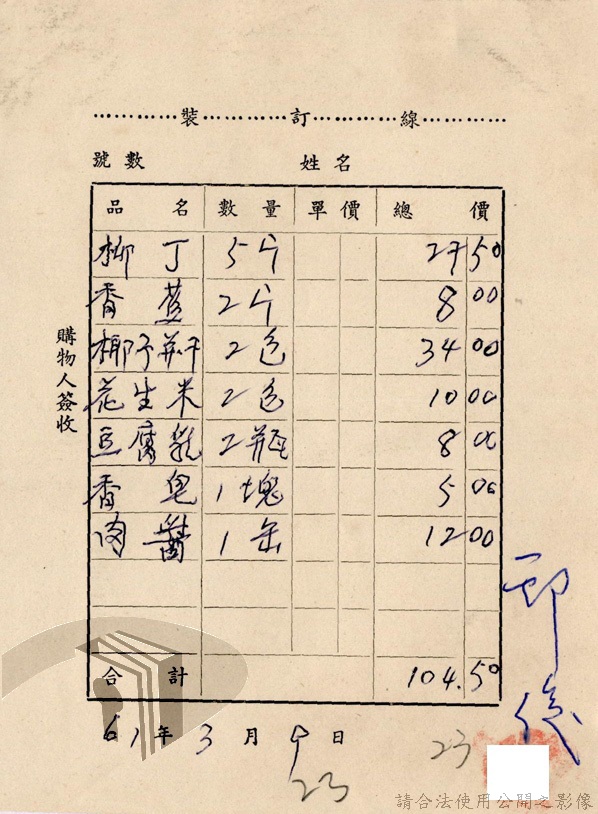 裝訂線
號數 姓名
品名 數量 單價 總價
柳丁 5斤 27 50
香蕉 2斤 8 00
椰子餅干 2包 34 00
花生米 2包 10 00
豆腐乳 2瓶 8 00
香皂 1塊 5 00
肉醬 1缶 12 00
合計 104.50
購物人簽收
61年3月9日
23
23
請合法使用公開之影像